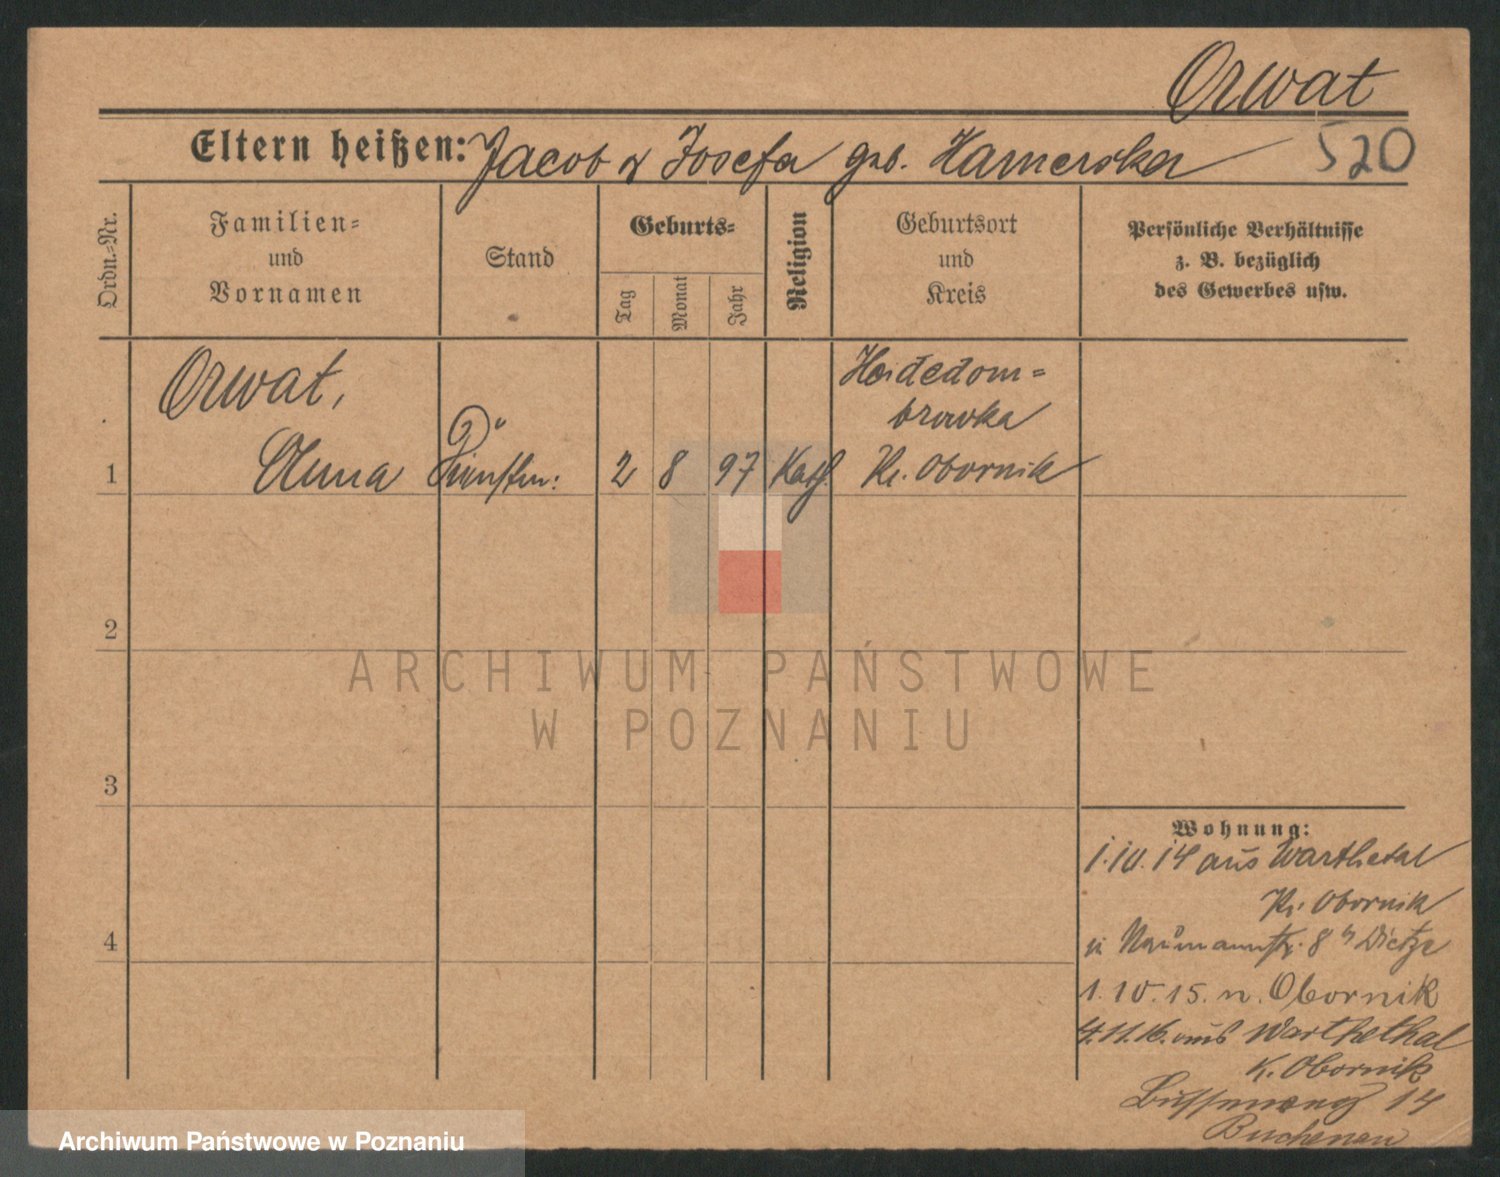 Orwat
Eltern heißen: Jacob & Josefa geb. Hamerska
520
Ordn.=Nr.
Familien=
und
Vornamen
Stand
Geburts=
Tag
Monat
Jahr
Religion
Geburtsort
und
Kreis
Persönliche Verhältnisse
z. B. bezüglich
des Gewerbes usw.
Orwat,
Heidedom=
browka
1 Anna 2 8 97 Kath. Kr. Obornik
2
3
4
Wohnung:
1.10.14 aus Warthetal
Kr. Obornik
in Naumannstr. 8 Dietze
1.10.15. n. Obornik
4.11.16. aus Warthethal
K. Obornik
14
ARCHIWUM PAŃSTWOWE
W POZNANIU
Archiwum Państwowe w Poznaniu